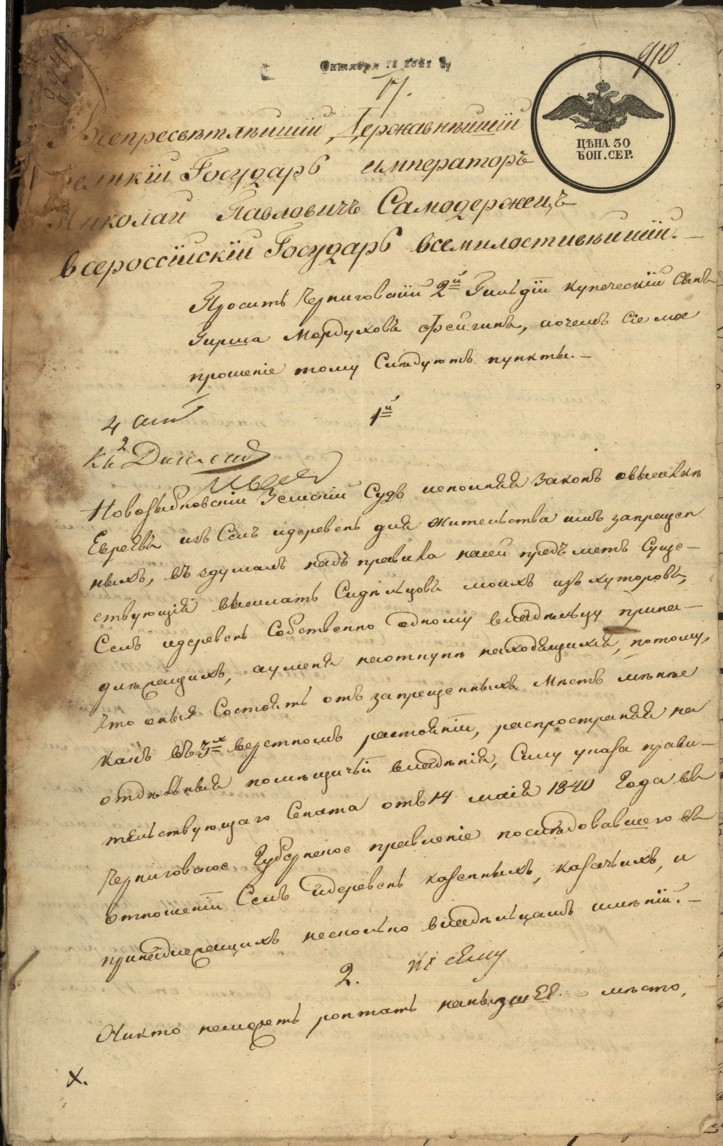 910.
ЦѢНА 30
КОП. СЕР.
Всепресвѣтлѣйшій Державнѣйшій
Великій Государь императоръ
Николай Павловичъ Самодержецъ
всероссійскій Государь всемилостивѣйшій. –
Проситъ Черниговскій 2й Гильдіи купеческій сынъ
Гирша Мордуховъ Фейгинъ, а очемъ сіе мое
прошеніе тому Слѣдуютъ пункты. –
1й
Новозыбковскій Земскій Судъ исполняя Законъ овысылкѣ
Евреевъ изъ Селъ идеревень для жительства имъ запрещен
ныхъ, вздумалъ надъ правила насей предъметъ Суще–
ствующія высылать Сидѣльцовъ моихъ изъ хуторовъ,
Селъ идеревень Собственно одному владѣльцу прина–
длежащихъ, ауменя наоткупѣ находящихся, потому,
что оныя Состоятъ отъ запрещенныхъ мѣстъ менѣе
какъ въ 3хъ верстномъ растояніи, распространяя на
отдѣльныя помѣщичьи владѣнія, Силу указа прави–
тельствующаго Сената отъ 14 мая 1840 Года въ
Черниговское Губернское правленіе послѣдовавшаго въ
отношеніи Селъ идеревень казенныхъ, казачьихъ, и
принадлежащихъ несколько владѣльцамъ имѣній. –
2. къ сему
Никто неможетъ роптать мѣсто,
X.